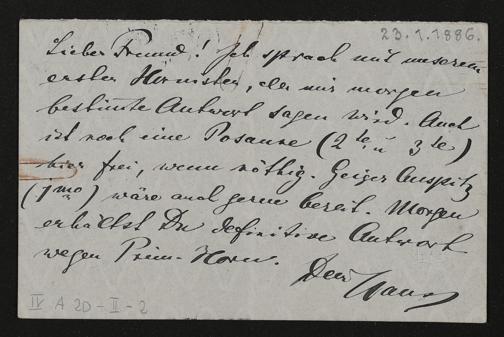 23.1.1886.
Lieber Freund! Ich sprach mit unserem
ersten Hornisten, der mir morgen
bestimmte Antwort sagen wird. Auch
ist noch eine Posaune (2te u 3te)
hier frei, wenn nöthig. Geiger Auspitz
(1mo) wäre auch gerne bereit. Morgen
erhältst Du definitive Antwort
wegen Prim-Horn.
Dein Hans
IV A 20-II-2